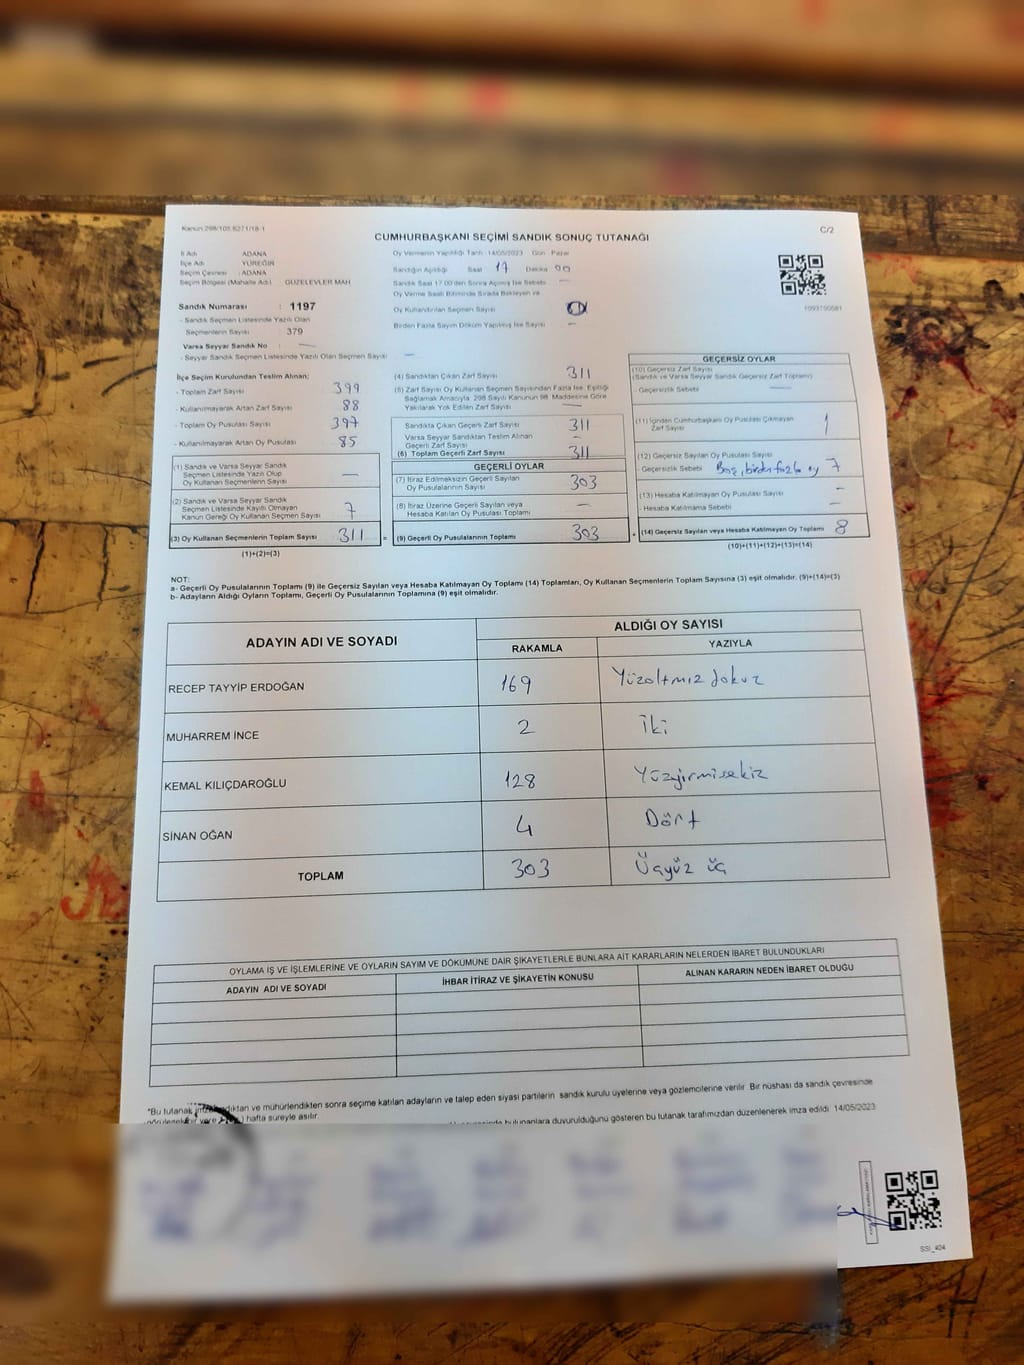 Kanun 298/105.6271/18-1
C/2
CUMHURBAŞKANI SEÇİMİ SANDIK SONUÇ TUTANAĞI
İl Adı ADANA
İlçe Adı YÜREĞİR
Seçim Çevresi : ADANA
Seçim Bölgesi (Mahalle Adı) : GÜZELEVLER MAH
Sandık Numarası : 1197
- Sandık Seçmen Listesinde Yazılı Olan
Seçmenlerin Sayısı : 379
Varsa Seyyar Sandık No : —
- Seyyar Sandık Seçmen Listesinde Yazılı Olan Seçmen Sayısı —
Oy Vermenin Yapıldığı Tarih : 14/05/2023 Gün : Pazar
Sandığın Açıldığı Saat 17 Dakika 00
Sandık Saat 17.00'den Sonra Açılmış İse Sebebi —
Oy Verme Saati Bitiminde Sırada Bekleyen ve
Oy Kullandırılan Seçmen Sayısı
Birden Fazla Sayım Döküm Yapılmış İse Sayısı —
1093700581
İlçe Seçim Kurulundan Teslim Alınan;
- Toplam Zarf Sayısı 399
- Kullanılmayarak Artan Zarf Sayısı 88
- Toplam Oy Pusulası Sayısı 397
- Kullanılmayarak Artan Oy Pusulası 85
(1) Sandık ve Varsa Seyyar Sandık
Seçmen Listesinde Yazılı Olup
Oy Kullanan Seçmenlerin Sayısı —
(2) Sandık ve Varsa Seyyar Sandık
Seçmen Listesinde Kayıtlı Olmayan
Kanun Gereği Oy Kullanan Seçmen Sayısı 7
(3) Oy Kullanan Seçmenlerin Toplam Sayısı 311 =
(1)+(2)=(3)
(4) Sandıktan Çıkan Zarf Sayısı 311
(5) Zarf Sayısı Oy Kullanan Seçmen Sayısından Fazla İse, Eşitliği
Sağlamak Amacıyla, 298 Sayılı Kanunun 98. Maddesine Göre
Yakılarak Yok Edilen Zarf Sayısı —
Sandıkta Çıkan Geçerli Zarf Sayısı 311
Varsa Seyyar Sandıktan Teslim Alınan
Geçerli Zarf Sayısı –
(6) Toplam Geçerli Zarf Sayısı 311
GEÇERLİ OYLAR
(7) İtiraz Edilmeksizin Geçerli Sayılan
Oy Pusulalarının Sayısı 303
(8) İtiraz Üzerine Geçerli Sayılan veya
Hesaba Katılan Oy Pusulası Toplamı —
(9) Geçerli Oy Pusulalarının Toplamı 303 +
GEÇERSİZ OYLAR
(10) Geçersiz Zarf Sayısı
(Sandık ve Varsa Seyyar Sandık Geçersiz Zarf Toplamı)
- Geçersizlik Sebebi —
(11) İçinden Cumhurbaşkanı Oy Pusulası Çıkmayan
Zarf Sayısı 1
(12) Geçersiz Sayılan Oy Pusulası Sayısı
- Geçersizlik Sebebi Boş, birden fazla oy 7
(13) Hesaba Katılmayan Oy Pusulası Sayısı –
- Hesaba Katılmama Sebebi –
(14) Geçersiz Sayılan veya Hesaba Katılmayan Oy Toplamı 8
(10)+(11)+(12)+(13)=(14)
NOT:
a- Geçerli Oy Pusulalarının Toplamı (9) ile Geçersiz Sayılan veya Hesaba Katılmayan Oy Toplamı (14) Toplamları, Oy Kullanan Seçmenlerin Toplam Sayısına (3) eşit olmalıdır. (9)+(14)=(3)
b- Adayların Aldığı Oyların Toplamı, Geçerli Oy Pusulalarının Toplamına (9) eşit olmalıdır.
ADAYIN ADI VE SOYADI ALDIĞI OY SAYISI
RAKAMLA YAZIYLA
RECEP TAYYİP ERDOĞAN 169 Yüzaltmız dokuz
MUHARREM İNCE 2 İki
KEMAL KILIÇDAROĞLU 128 Yüzyirmisekiz
SİNAN OĞAN 4 Dört
TOPLAM 303 Üçyüz üç
OYLAMA İŞ VE İŞLEMLERİNE VE OYLARIN SAYIM VE DÖKÜMÜNE DAİR ŞİKAYETLERLE BUNLARA AİT KARARLARIN NELERDEN İBARET BULUNDUKLARI
ADAYIN ADI VE SOYADI İHBAR İTİRAZ VE ŞİKAYETİN KONUSU ALINAN KARARIN NEDEN İBARET OLDUĞU
*Bu tutanak ve mühürlendikten sonra seçime katılan adayların ve talep eden siyasi partilerin sandık kurulu üyelerine veya gözlemcilerine verilir. Bir nüshası da sandık çevresinde
hafta süreyle asılır.
bulunanlara duyurulduğunu gösteren bu tutanak tarafımızdan düzenlenerek imza edildi. 14/05/2023
SSI_404